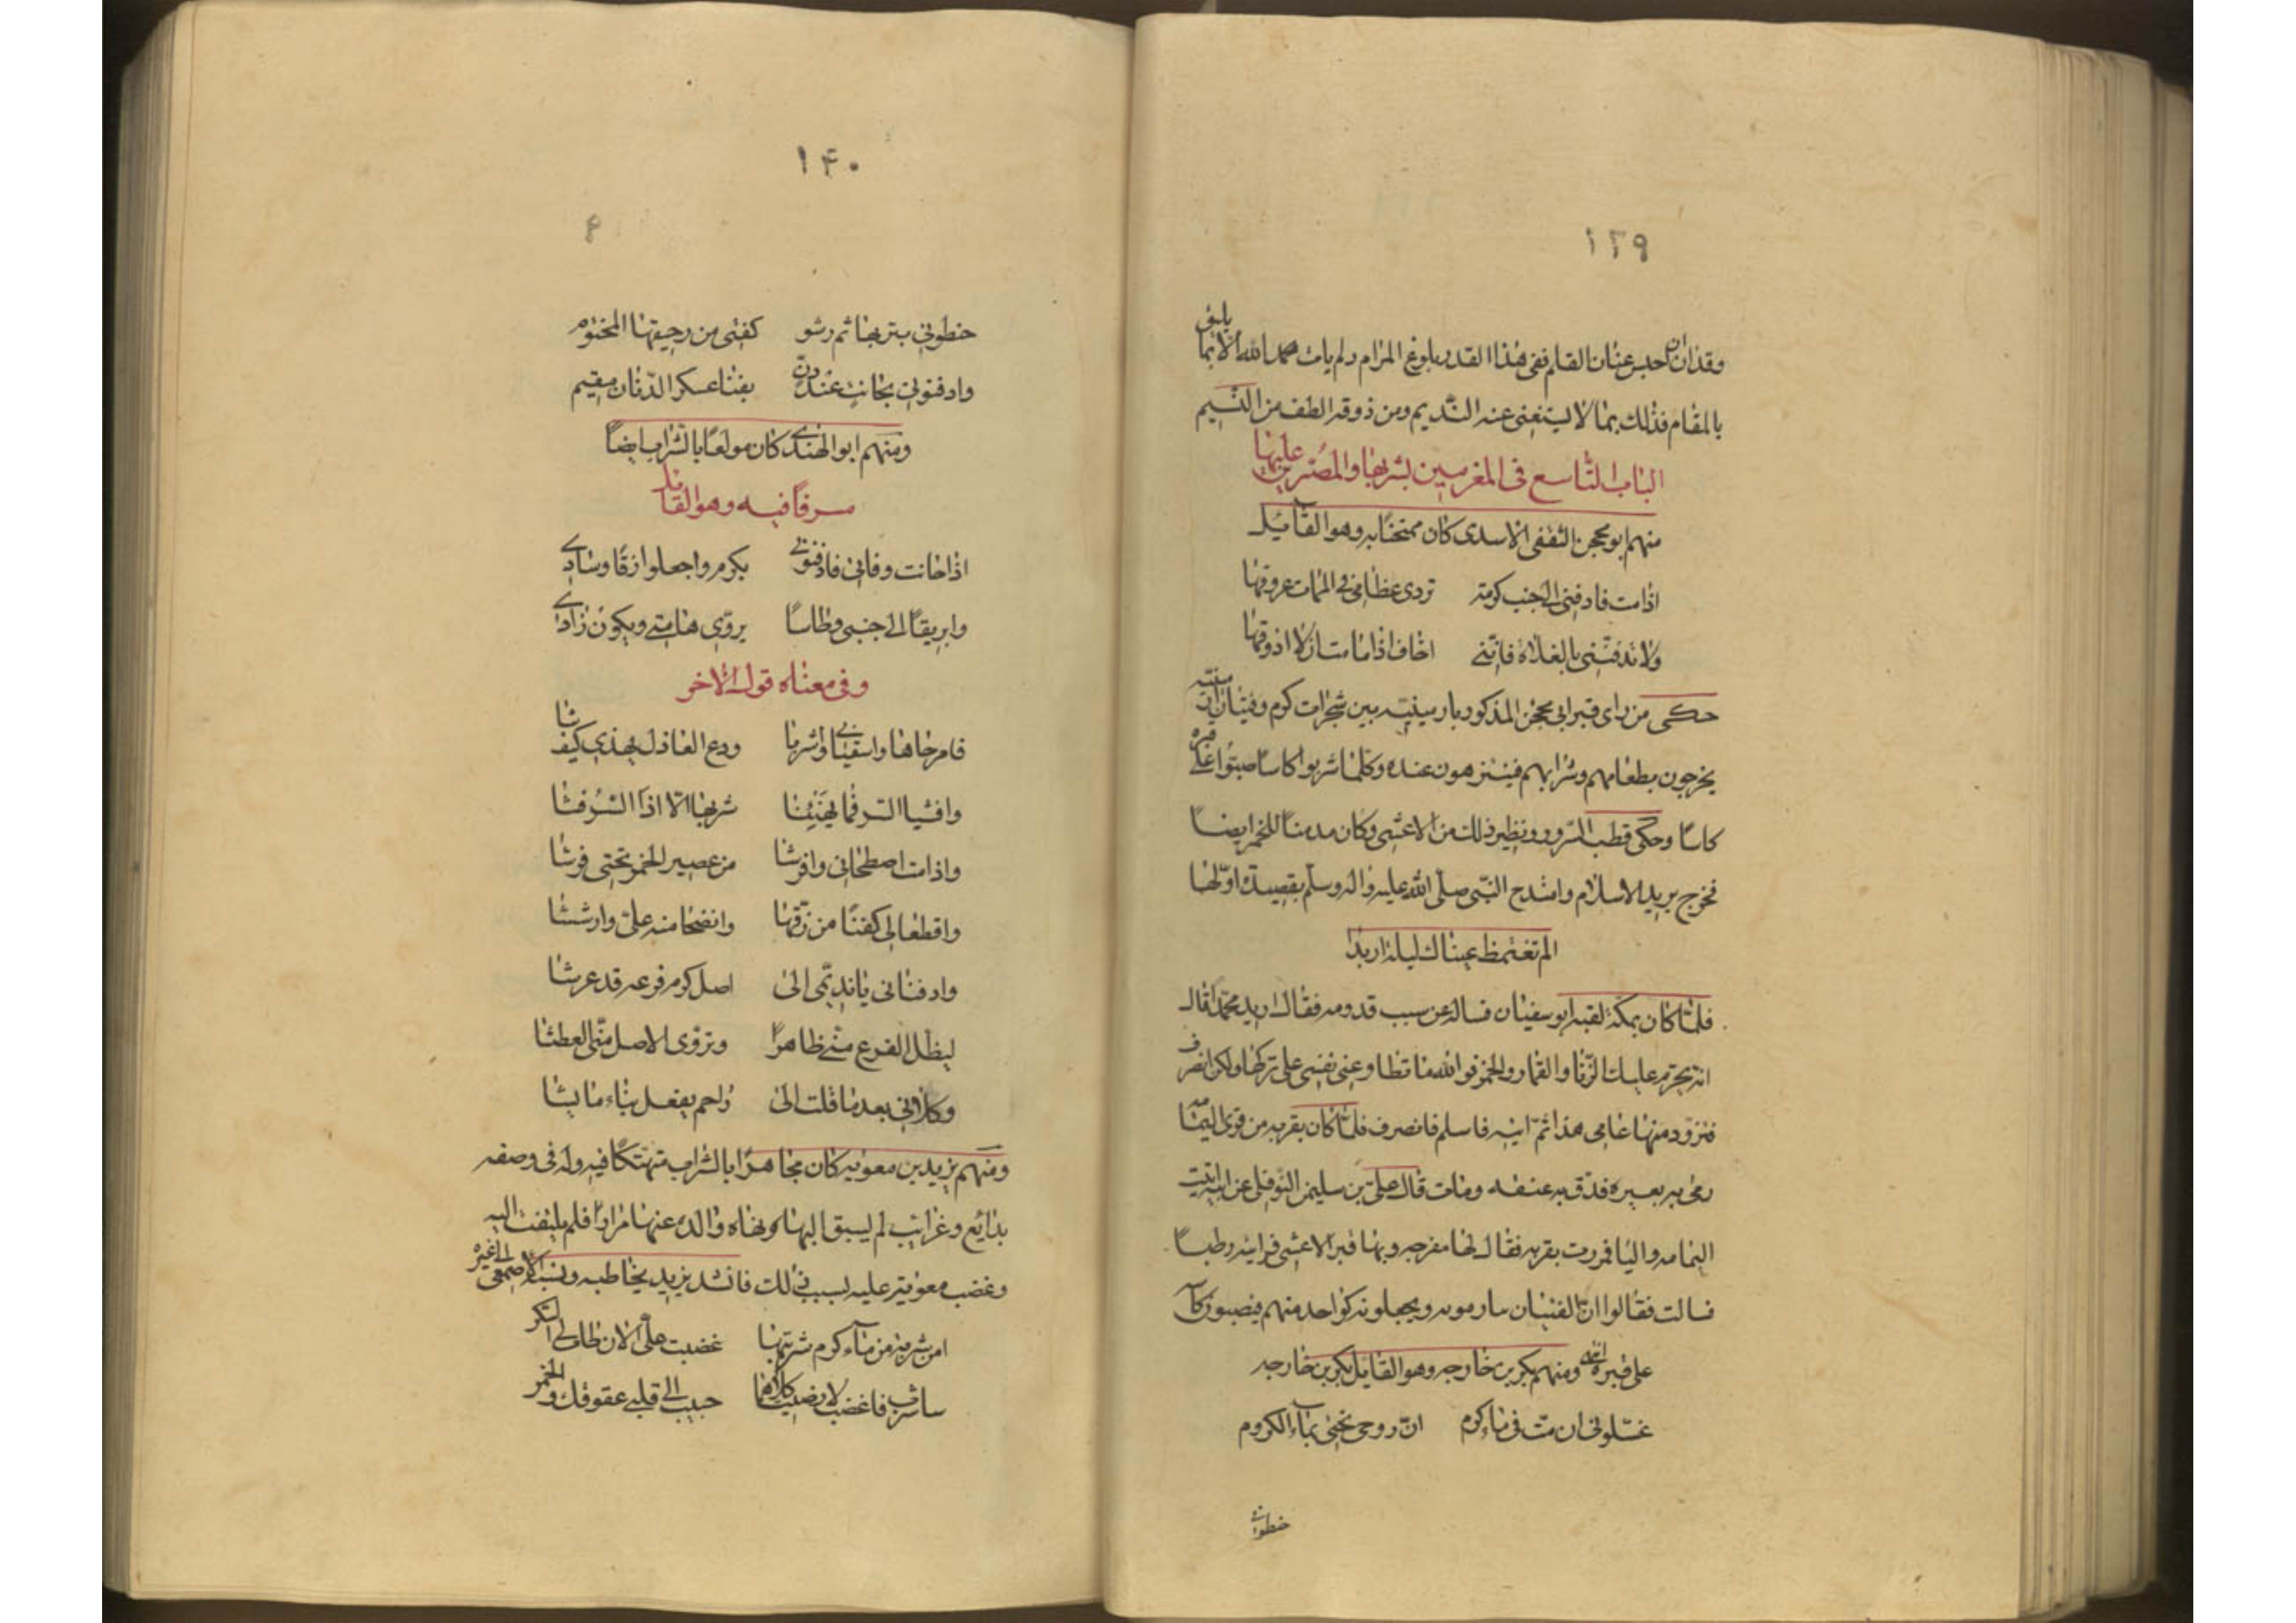 ١٣٩
وقد ان ان احبس عنان القلم ففى هذا القدر بلوغ المرام ولم يات بحمد الله الا بما يليق
بالمقام فذلك بما لا يستغنى عنه النديم ومن ذوقه الطف من النسيم
الباب التاسع فى المغرمين بشربها والمصرين عليها
منهم ابو محجن الثقفى الاسدى كان ممتحنا به وهو القائيل
اذا مت فادفنى الى جنب كرمة تروى عظامى فى الممات عروقها
ولا تدفننى بالفلاة فاننى اخاف اذا ما مت ان لا اذوقها
حكى من راى قبر ابى محجن المذكور بارمينيته بين شجرات كرم وفتيان ارمينيه
يخرجون بطعامهم وشرابهم فيتنزهون عنده وكلما شربوا كاسا صبوا على قبره
كاسا وحكى قطب السرور ونظير ذلك من الاعشى وكان مدمنا للخمر ايضا
فخرج يريد الاسلام وامتدح النبى صلى الله عليه واله وسلم بقصيدة اولها
الم تغتمظ عيناك ليلة اربدا
فلما كان بمكة لقيه ابو سفيان فساله عن سبب قدومه فقال اريد محمدا قال
انه يحرم عليك الزنا والقمار والخمر فو الله ما تطاوعنى نفسى على تركها ولكن انصرف
فتزود منها عامى هذا ثم اتيه فاسلم فانصرف فلما كان بقريه من قرى اليمامه
رمى به بعيره فدق به عنقه ومات قال على بن سليمن النوفلى عن ابيه اتيت
اليمامه واليا فمررت بقريه فقال لها مفرجه وبها قبر الاعشى فرايته رطبا
فسالت فقالوا ان الفتيان ينادمونه ويجعلونه كواحد منهم فيصبون كاسه
على قبره انتهى ومنهم بكر بن خارجه وهو القائل بكر بن خارجه
غسلونى ان مت فى ماء كرم ان روحى تحيى بماء الكروم
حنطونى
١۴٠
۴
حنطونى بتربها ثم رشو كفنى من رحيقها المختوم
وادفنونى بجانب عند دن بفنا عسكر الدنان مقيم
ومنهم ابو الهندى كان مولعا بالشراب ايضا
مسرفا فيه وهو القائل
اذا حانت وفاتى فادفنونى بكرم واجعلوا زقا وسادى
وابريقا الى جنبى وطاسا يروى هامتى ويكون زادى
وفى معناه قول الاخر
قام حاها واسقيانى واشربا ودع العاذل يهذى كيف شا
وافشيا السر فما يهنينا شربها الا اذا السر فشا
واذا مت اصطحانى وافرشا من عصير الخمر تحتى فرشا
واقطعا لى كفنا من زقها وانضحا منه على وارششا
وادفنانى يا نديمى الى اصل كرم فرعه قد عرشا
ليظل الفرع منى ظاهرا وتروى الاصل منى العطشا
وكلانى بعد ما قلت الى راحم يفعل بى ما يشا
ومنهم يزيد بن معويه كان مجاهرا بالشراب متهتكا فيه وله فى وصفه
بدائع وغرائب لم يسبق اليها ونهاه والده عنها مرارا فلم يلتفت اليه
وغضب معوية عليه بسبب ذلك فانشد يزيد يخاطبه ونسب الاصمعى الى غيره
امن شربة من ماء كرم شربتها غضبت على الان طاب لى السكر
ساشرب فاغضب لا رضيت كلاهما حبيب الى قلبى عقوقك والخمر